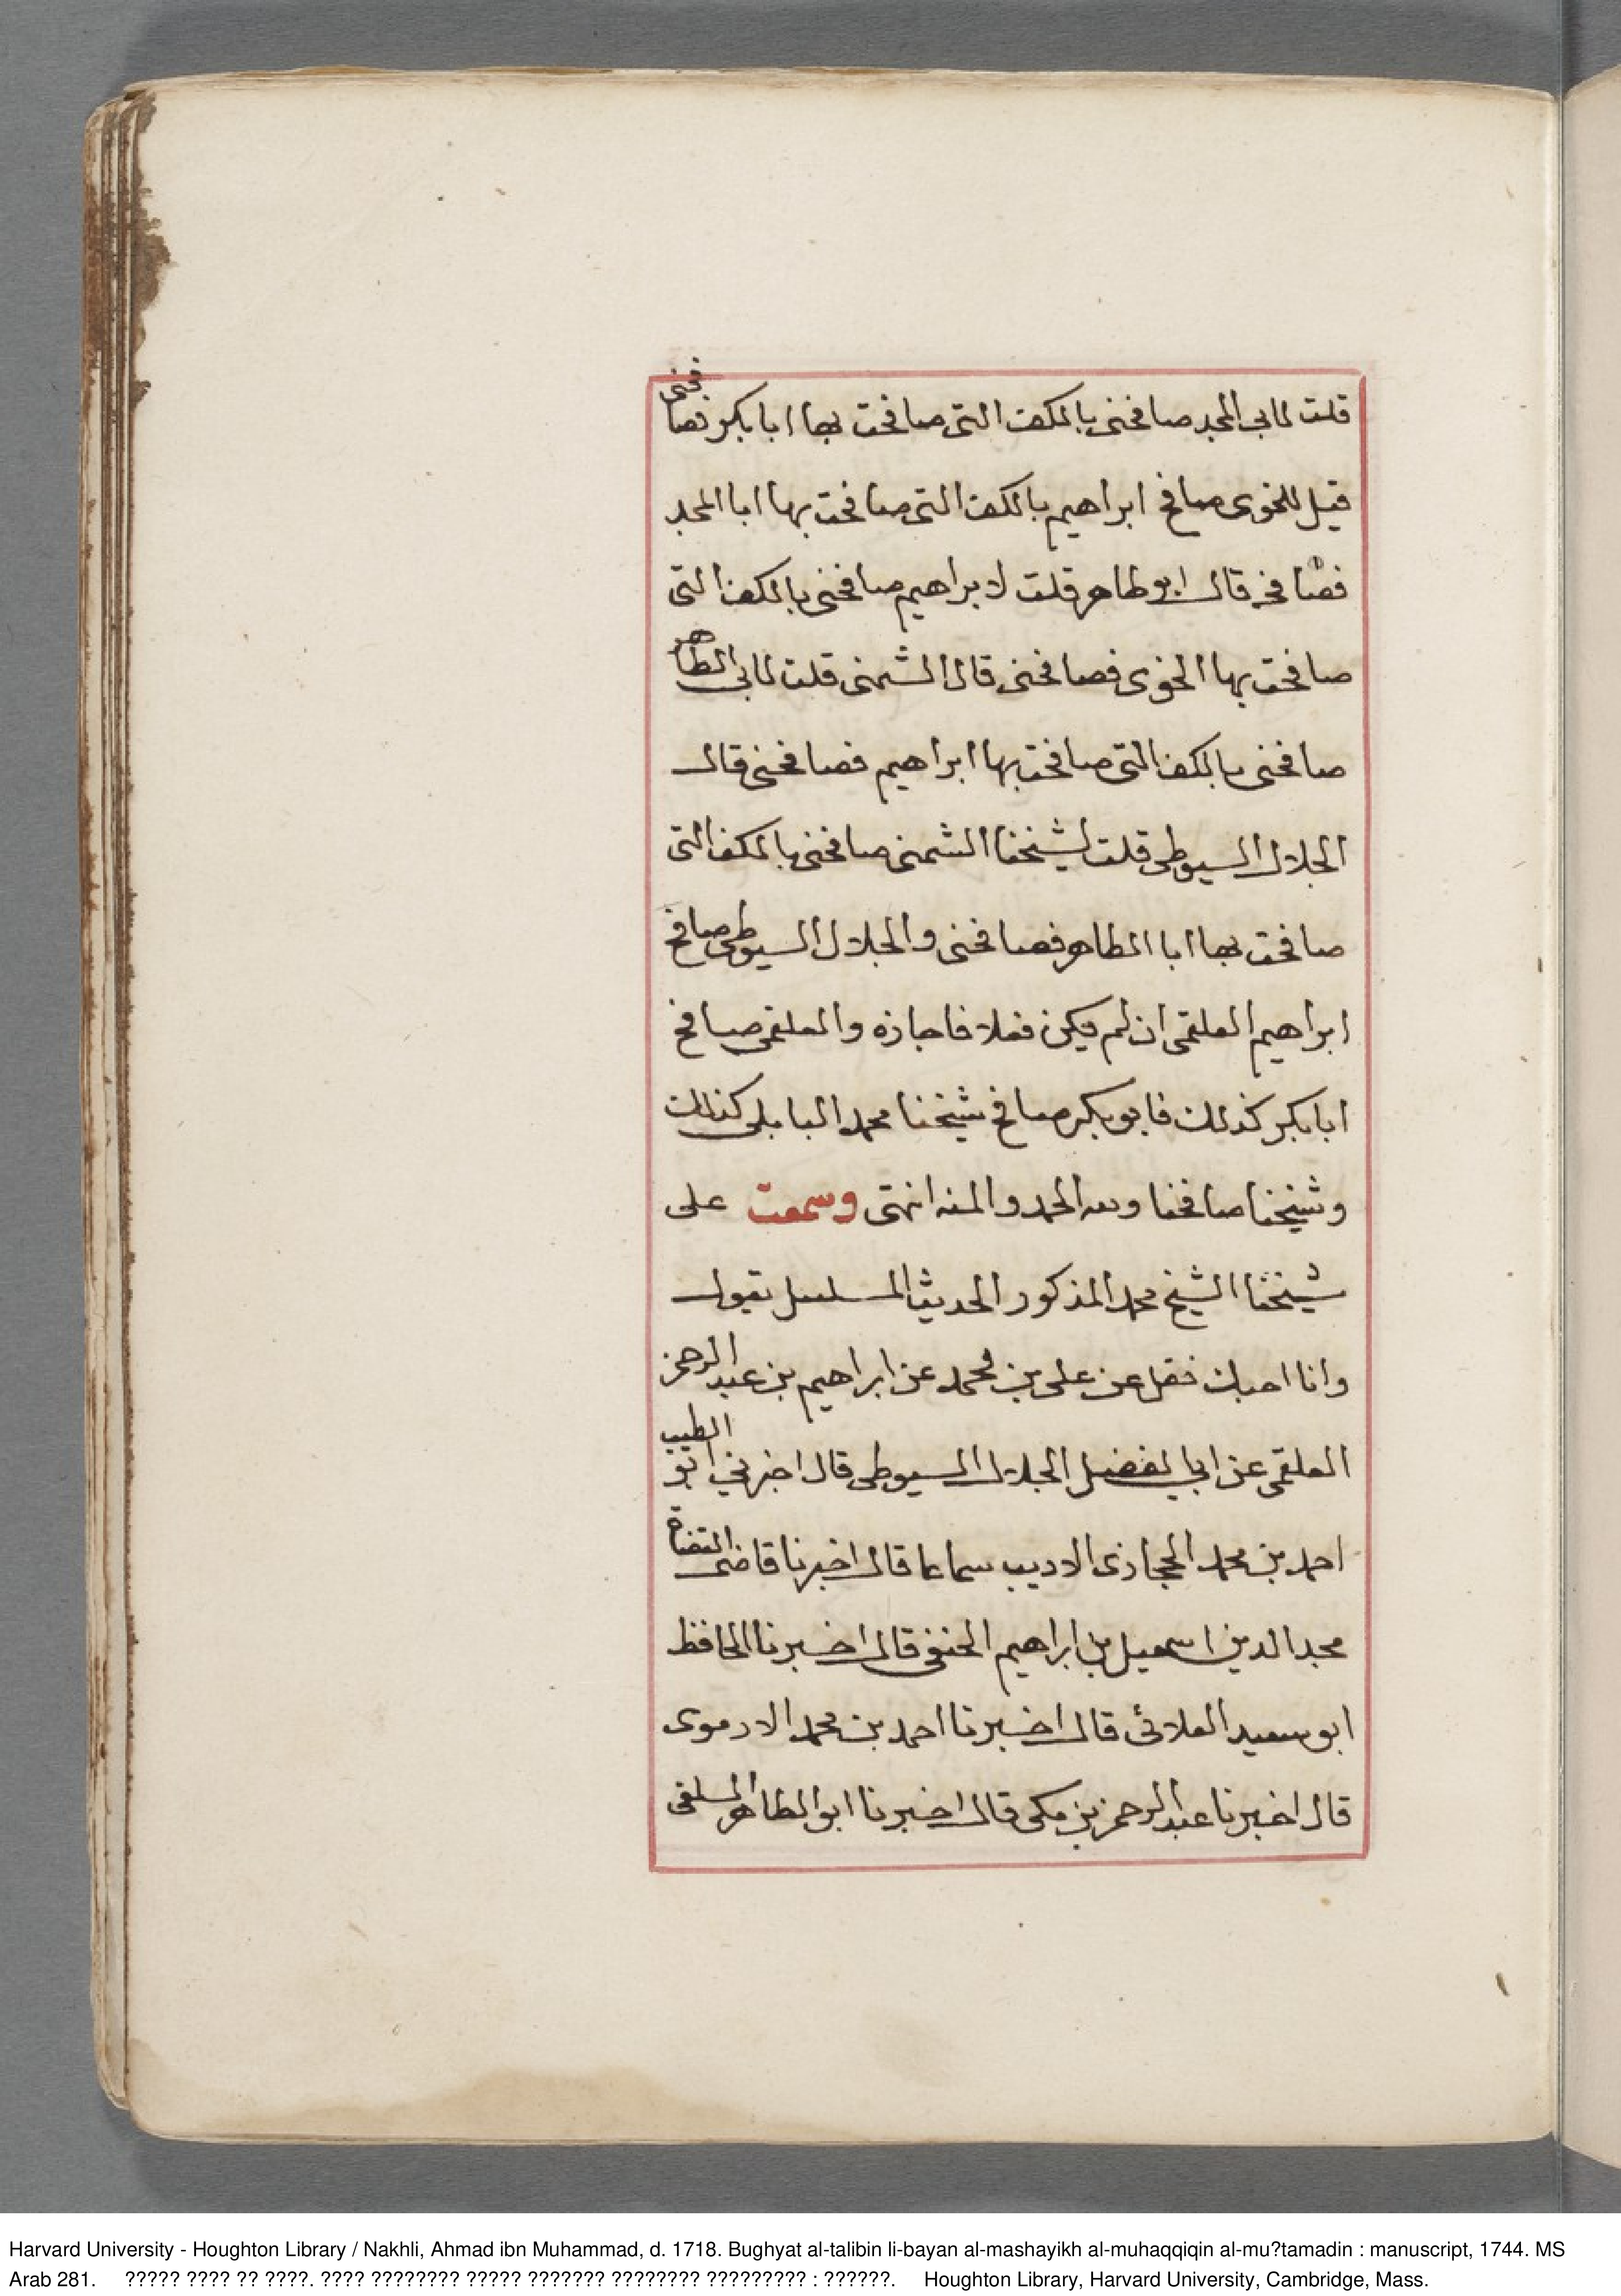 قلت لابي المجد صافحنى بالكف التى صافحت بها ابا بكر فصافحنى
قيل للخوى صافح ابراهيم بالكف التى صافحت بها ابا المجد
فصافحه قال ابو طاهر قلت لابراهيم صافحنى بالكف التى
صافحت بها الخوى فصافحنى قال الشمنى قلت لابى الطاهر
صافحنى بالكف التى صافحت بها ابراهيم فصافحنى قال
الجلال السيوطى قلت لشيخنا الشمنى صافحنى بالكف التى
صافحت بها ابا الطاهر فصافحنى والجلال السيوطى صافح
ابراهيم العلقمى ان لم يكن فعلا فاجازه والعلقمى صافح
ابا بكر كذلك فابو بكر صافح شيخنا محمد البابلى كذلك
وشيخنا صافحنا ولله الحمد والمنه انتهى وسمعت على
شيخنا الشيخ محمد المذكور الحديث المسلسل بقول
وانا احبك فقل عن على بن محمد عن ابراهيم بن عبد الرحمن
العلقمى عن ابى الفضل الجلال السيوطى قال اخبرني ابو الطيب
احمد بن محمد الحجازى الاديب سماعا قال اخبرنا قاضى القضاة
مجد الدين اسمعيل بن ابراهيم الحنفى قال اخبرنا الحافظ
ابو سعيد العلائى قال اخبرنا احمد بن محمد الارموى
قال اخبرنا عبد الرحمن بن مكى قال اخبرنا ابو الطاهر السلفى
Harvard University - Houghton Library / Nakhli, Ahmad ibn Muhammad, d. 1718. Bughyat al-talibin li-bayan al-mashayikh al-muhaqqiqin al-mu?tamadin : manuscript, 1744. MS
Arab 281. ????? ???? ?? ????. ???? ???????? ????? ??????? ???????? ????????? : ??????. Houghton Library, Harvard University, Cambridge, Mass.